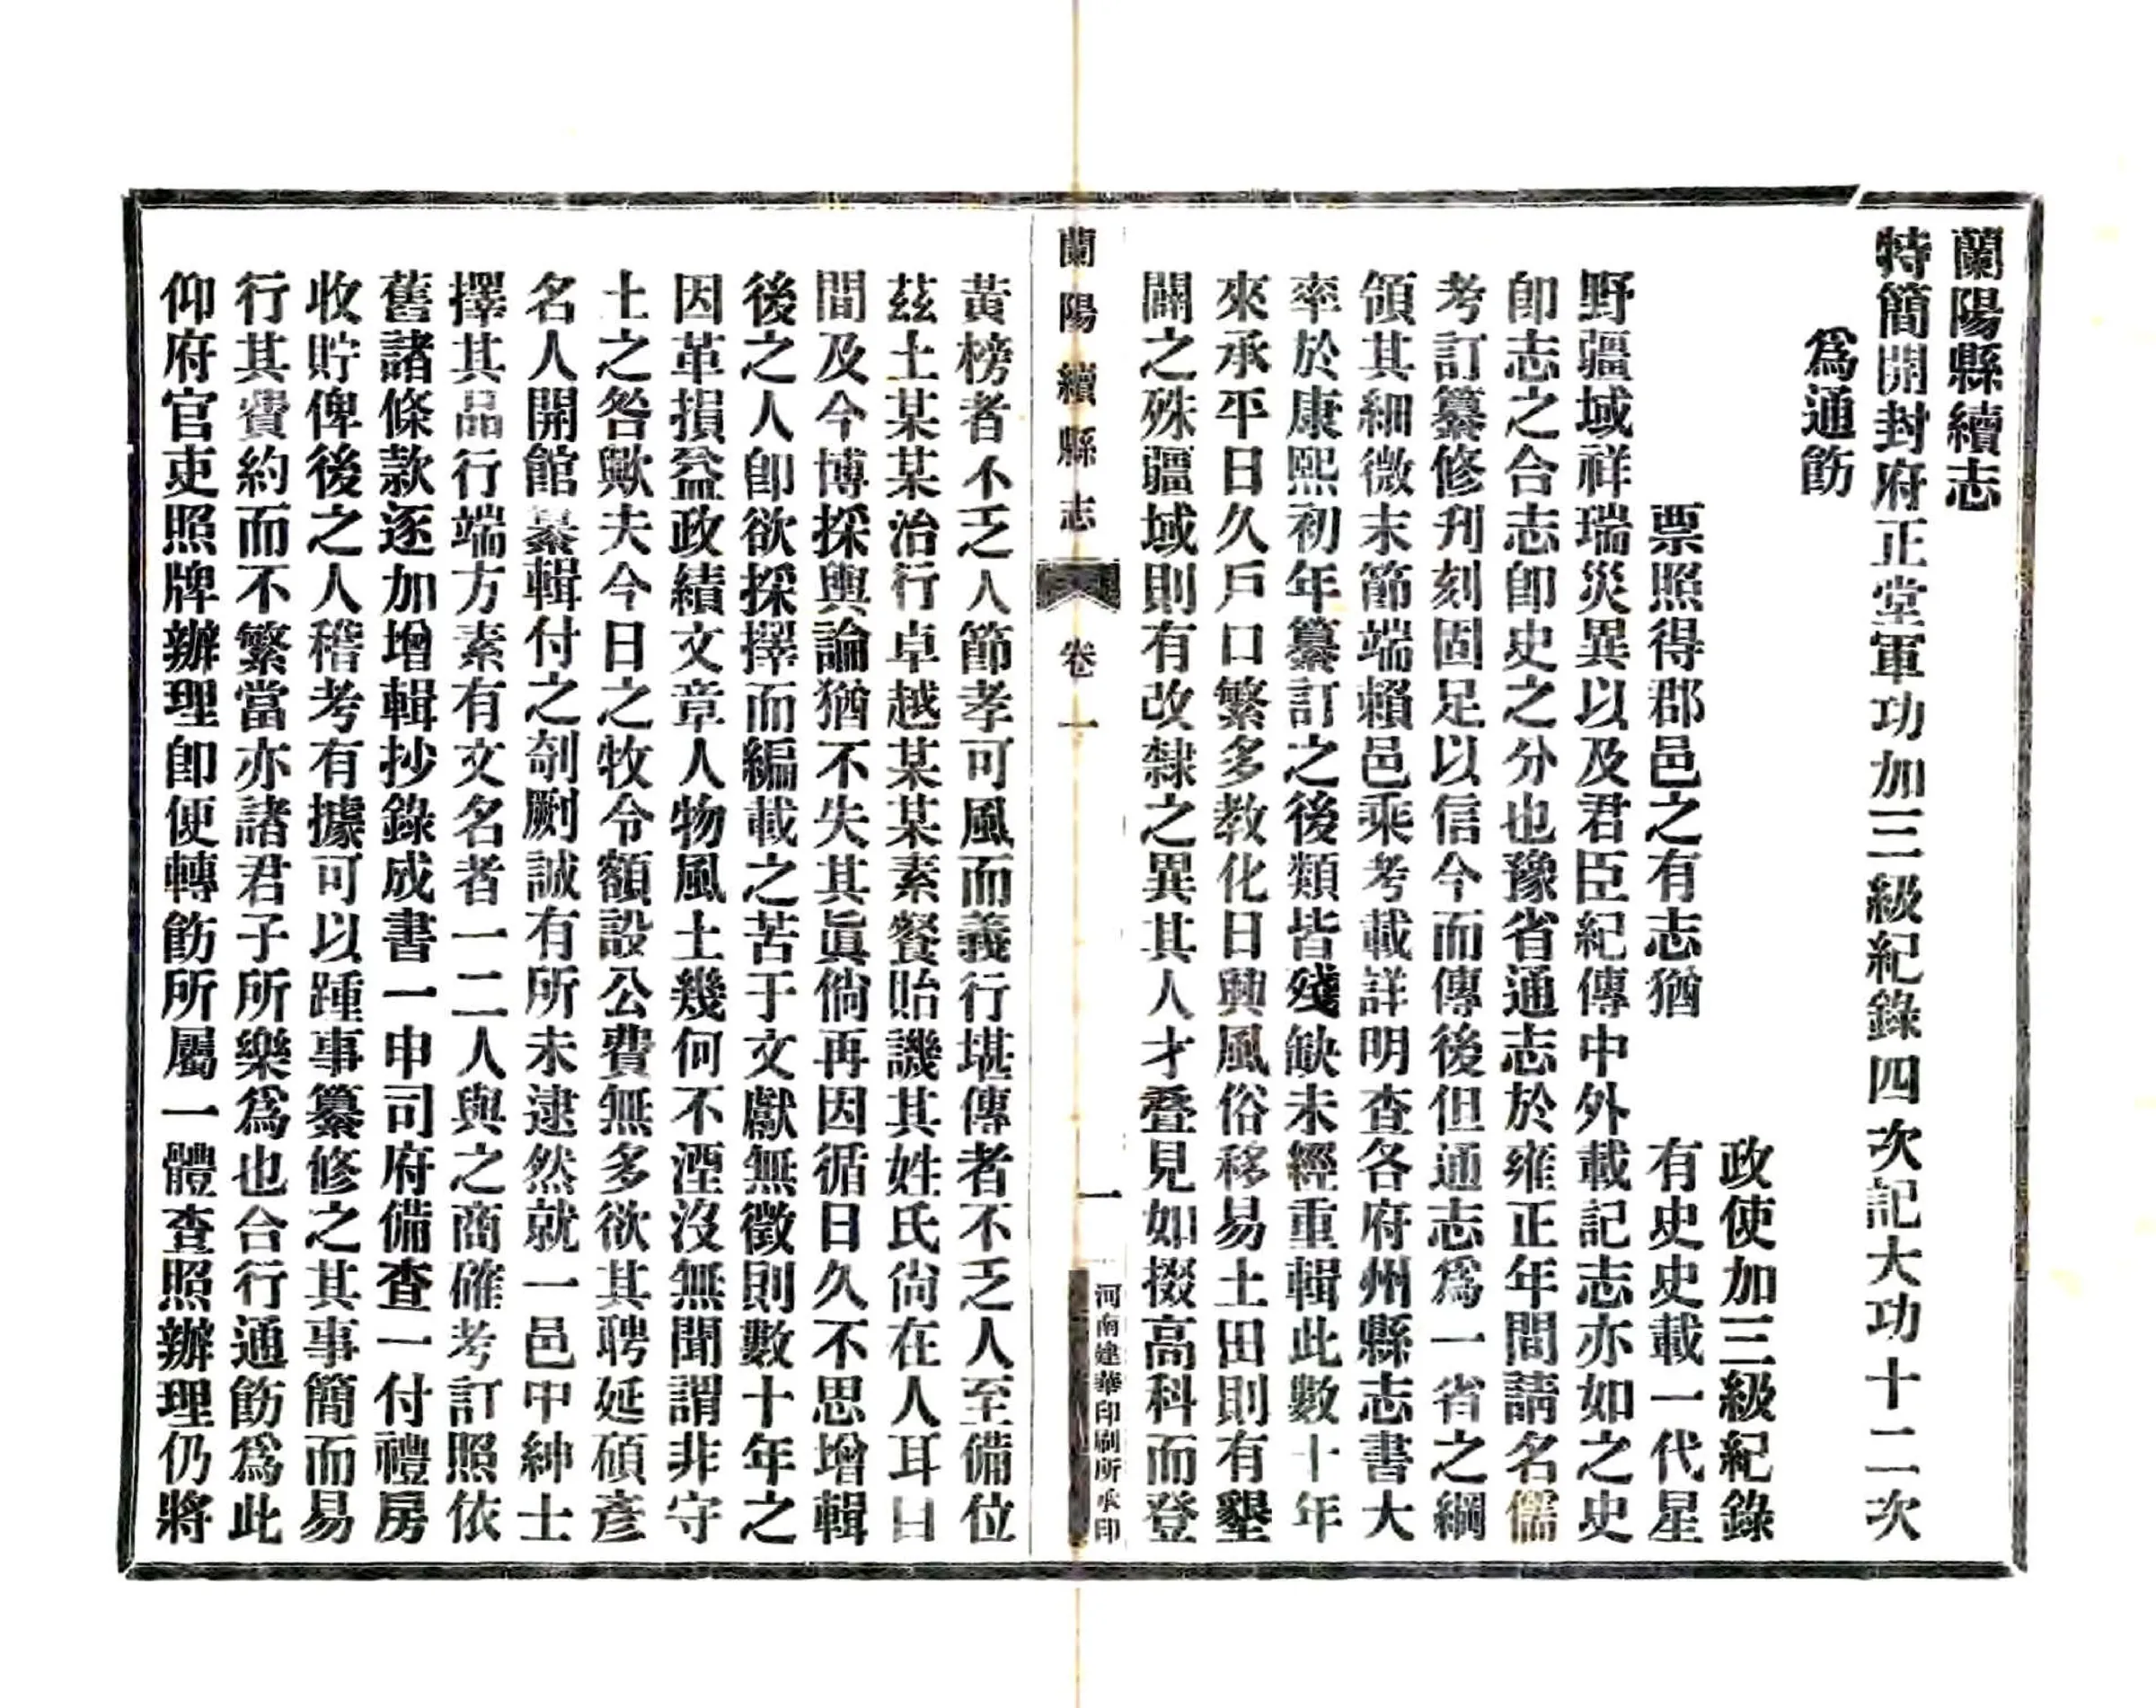 蘭陽縣續志
特簡開封府正堂軍功加三級紀錄四次記大功十二次
爲通飭
政使加三級紀錄
票照得郡邑之有志猶　　有史史載一代星
野疆域祥瑞災異以及君臣紀傳中外載記志亦如之史
卽志之合志卽史之分也豫省通志於雍正年間請名儒
考訂纂修刋刻固足以信今而傳後但通志爲一省之綱
領其細微末節端賴邑乘考載詳明查各府州縣志書大
率於康熙初年纂訂之後類皆殘缺未經重輯此數十年
來承平日久戶口繁多教化日興風俗移易土田則有墾
闢之殊疆域則有改隸之異其人才叠見如掇高科而登
蘭陽續縣志　卷一　一　河南建華印刷所承印
黃榜者不乏人節孝可風而義行堪傳者不乏人至備位
茲土某某治行卓越某某素餐貽譏其姓氏尙在人耳目
間及今博採輿論猶不失其眞倘再因循日久不思增輯
後之人卽欲採擇而編載之苦于文獻無徵則數十年之
因革損益政績文章人物風土幾何不湮沒無聞謂非守
土之咎歟夫今日之牧令額設公費無多欲其聘延碩彥
名人開館纂輯付之剞劂誠有所未逮然就一邑中紳士
擇其品行端方素有文名者一二人與之商確考訂照依
舊諸條款逐加增輯抄錄成書一申司府備查一付禮房
收貯俾後之人稽考有據可以踵事纂修之其事簡而易
行其費約而不繁當亦諸君子所樂爲也合行通飭爲此
仰府官吏照牌辦理卽便轉飭所屬一體查照辦理仍將